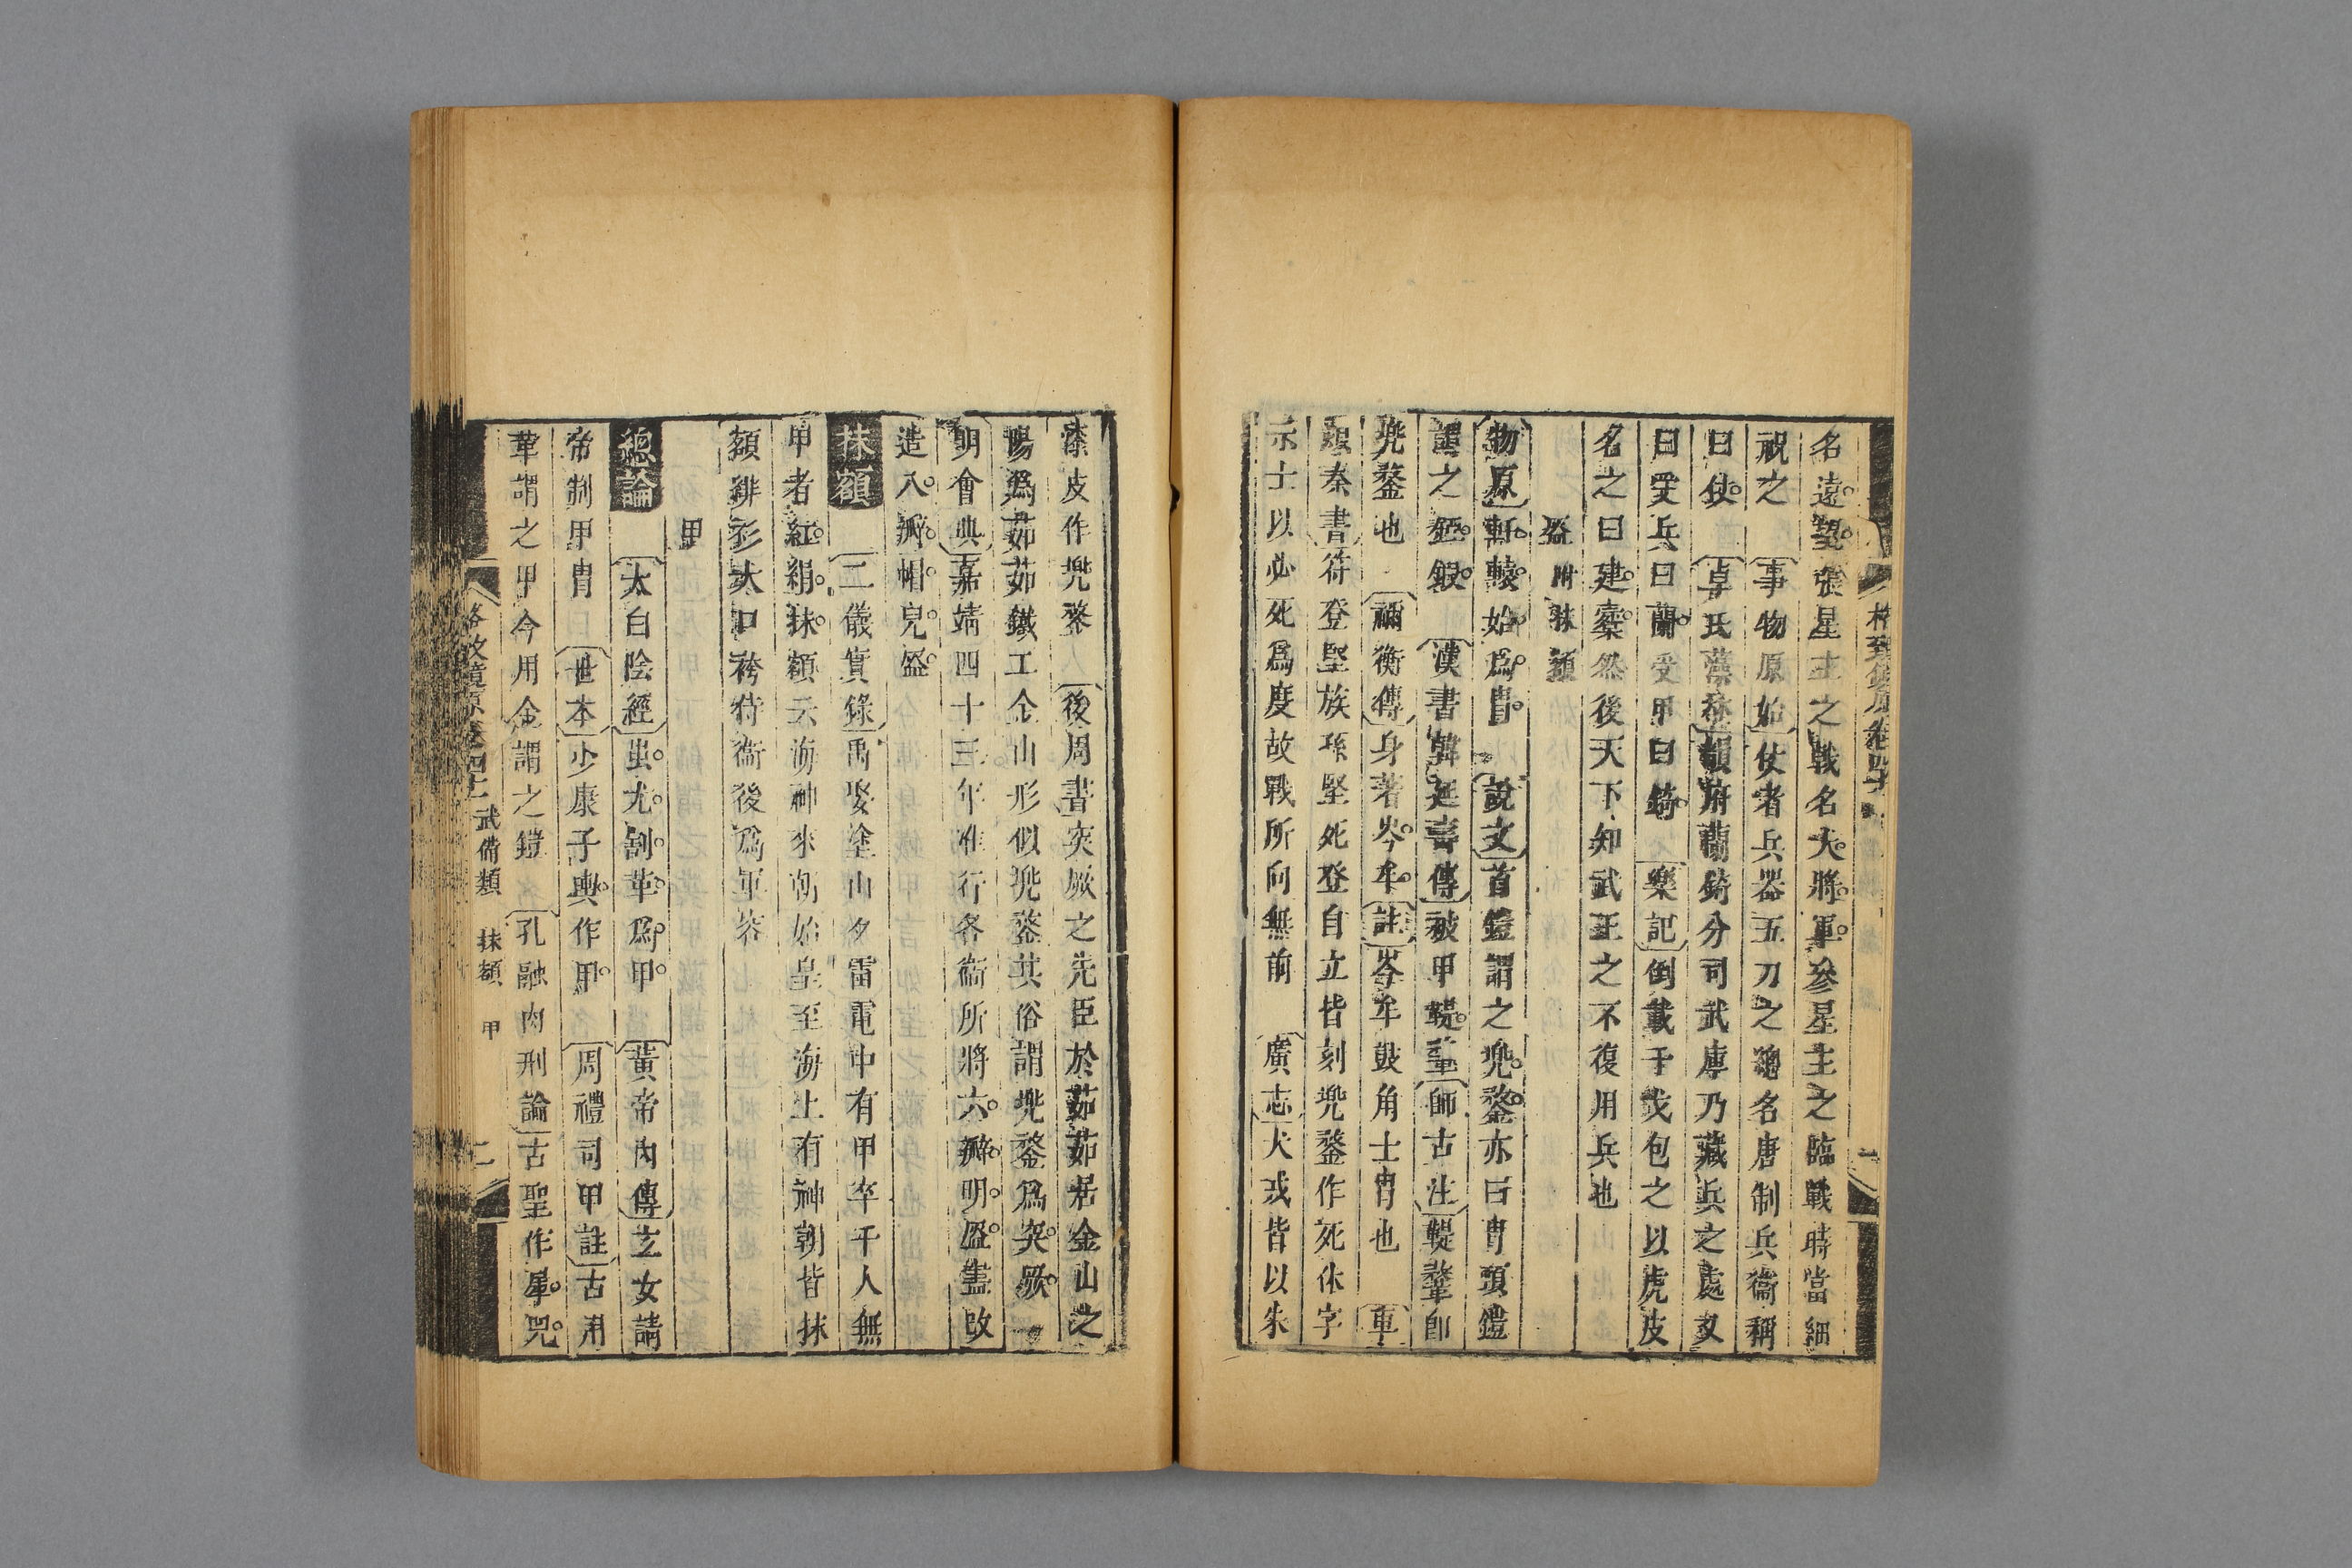 格致鏡原卷四十
名遠望張星主之戰名大將軍參星主之臨戰時當細
祝之　事物原始仗者兵器五刃之總名唐制兵衞稱
曰仗　卓氏藻林韻府蘭錡分司武庫乃藏兵之處又
曰受兵曰蘭受甲曰錡　樂記倒載干戈包之以虎皮
名之曰建櫜然後天下知武王之不復用兵也
盔　附抹額
物原軒轅始爲冑　說文首鎧謂之兜鍪亦曰冑頭鎧
謂之錏鍜　漢書韓延壽傳被甲鞮鞪師古注鞮鞪卽
兜鍪也　禰衡傳身著岑牟註岑牟鼓角士冑也　車
頻秦書苻登堅族孫堅死登自立皆刻兜鍪作死休字
示士以必死爲度故戰所向無前　廣志犬戎皆以朱
漆皮作兜鍪　後周書突厥之先臣於茹茹居金山之
陽爲茹茹鐵工金山形似兜鍪其俗謂兜鍪爲突厥
明會典嘉靖四十三年准行各衞所將六瓣明盔盡改
造八瓣帽兒盔
抹額　二儀實錄禹娶塗山夕雷電中有甲卒千人無
甲者紅絹抹額云海神來朝始皇至海上有神朝皆抹
額緋衫大口袴侍衞後爲軍容
甲
總論　太白陰經蚩尤割革爲甲　黃帝內傳玄女請
帝制甲冑　世本少康子輿作甲　周禮司甲註古用
革謂之甲今用金謂之鎧　孔融肉刑論古聖作犀兕
格致鏡原卷四十　武備類　抹額　甲　二